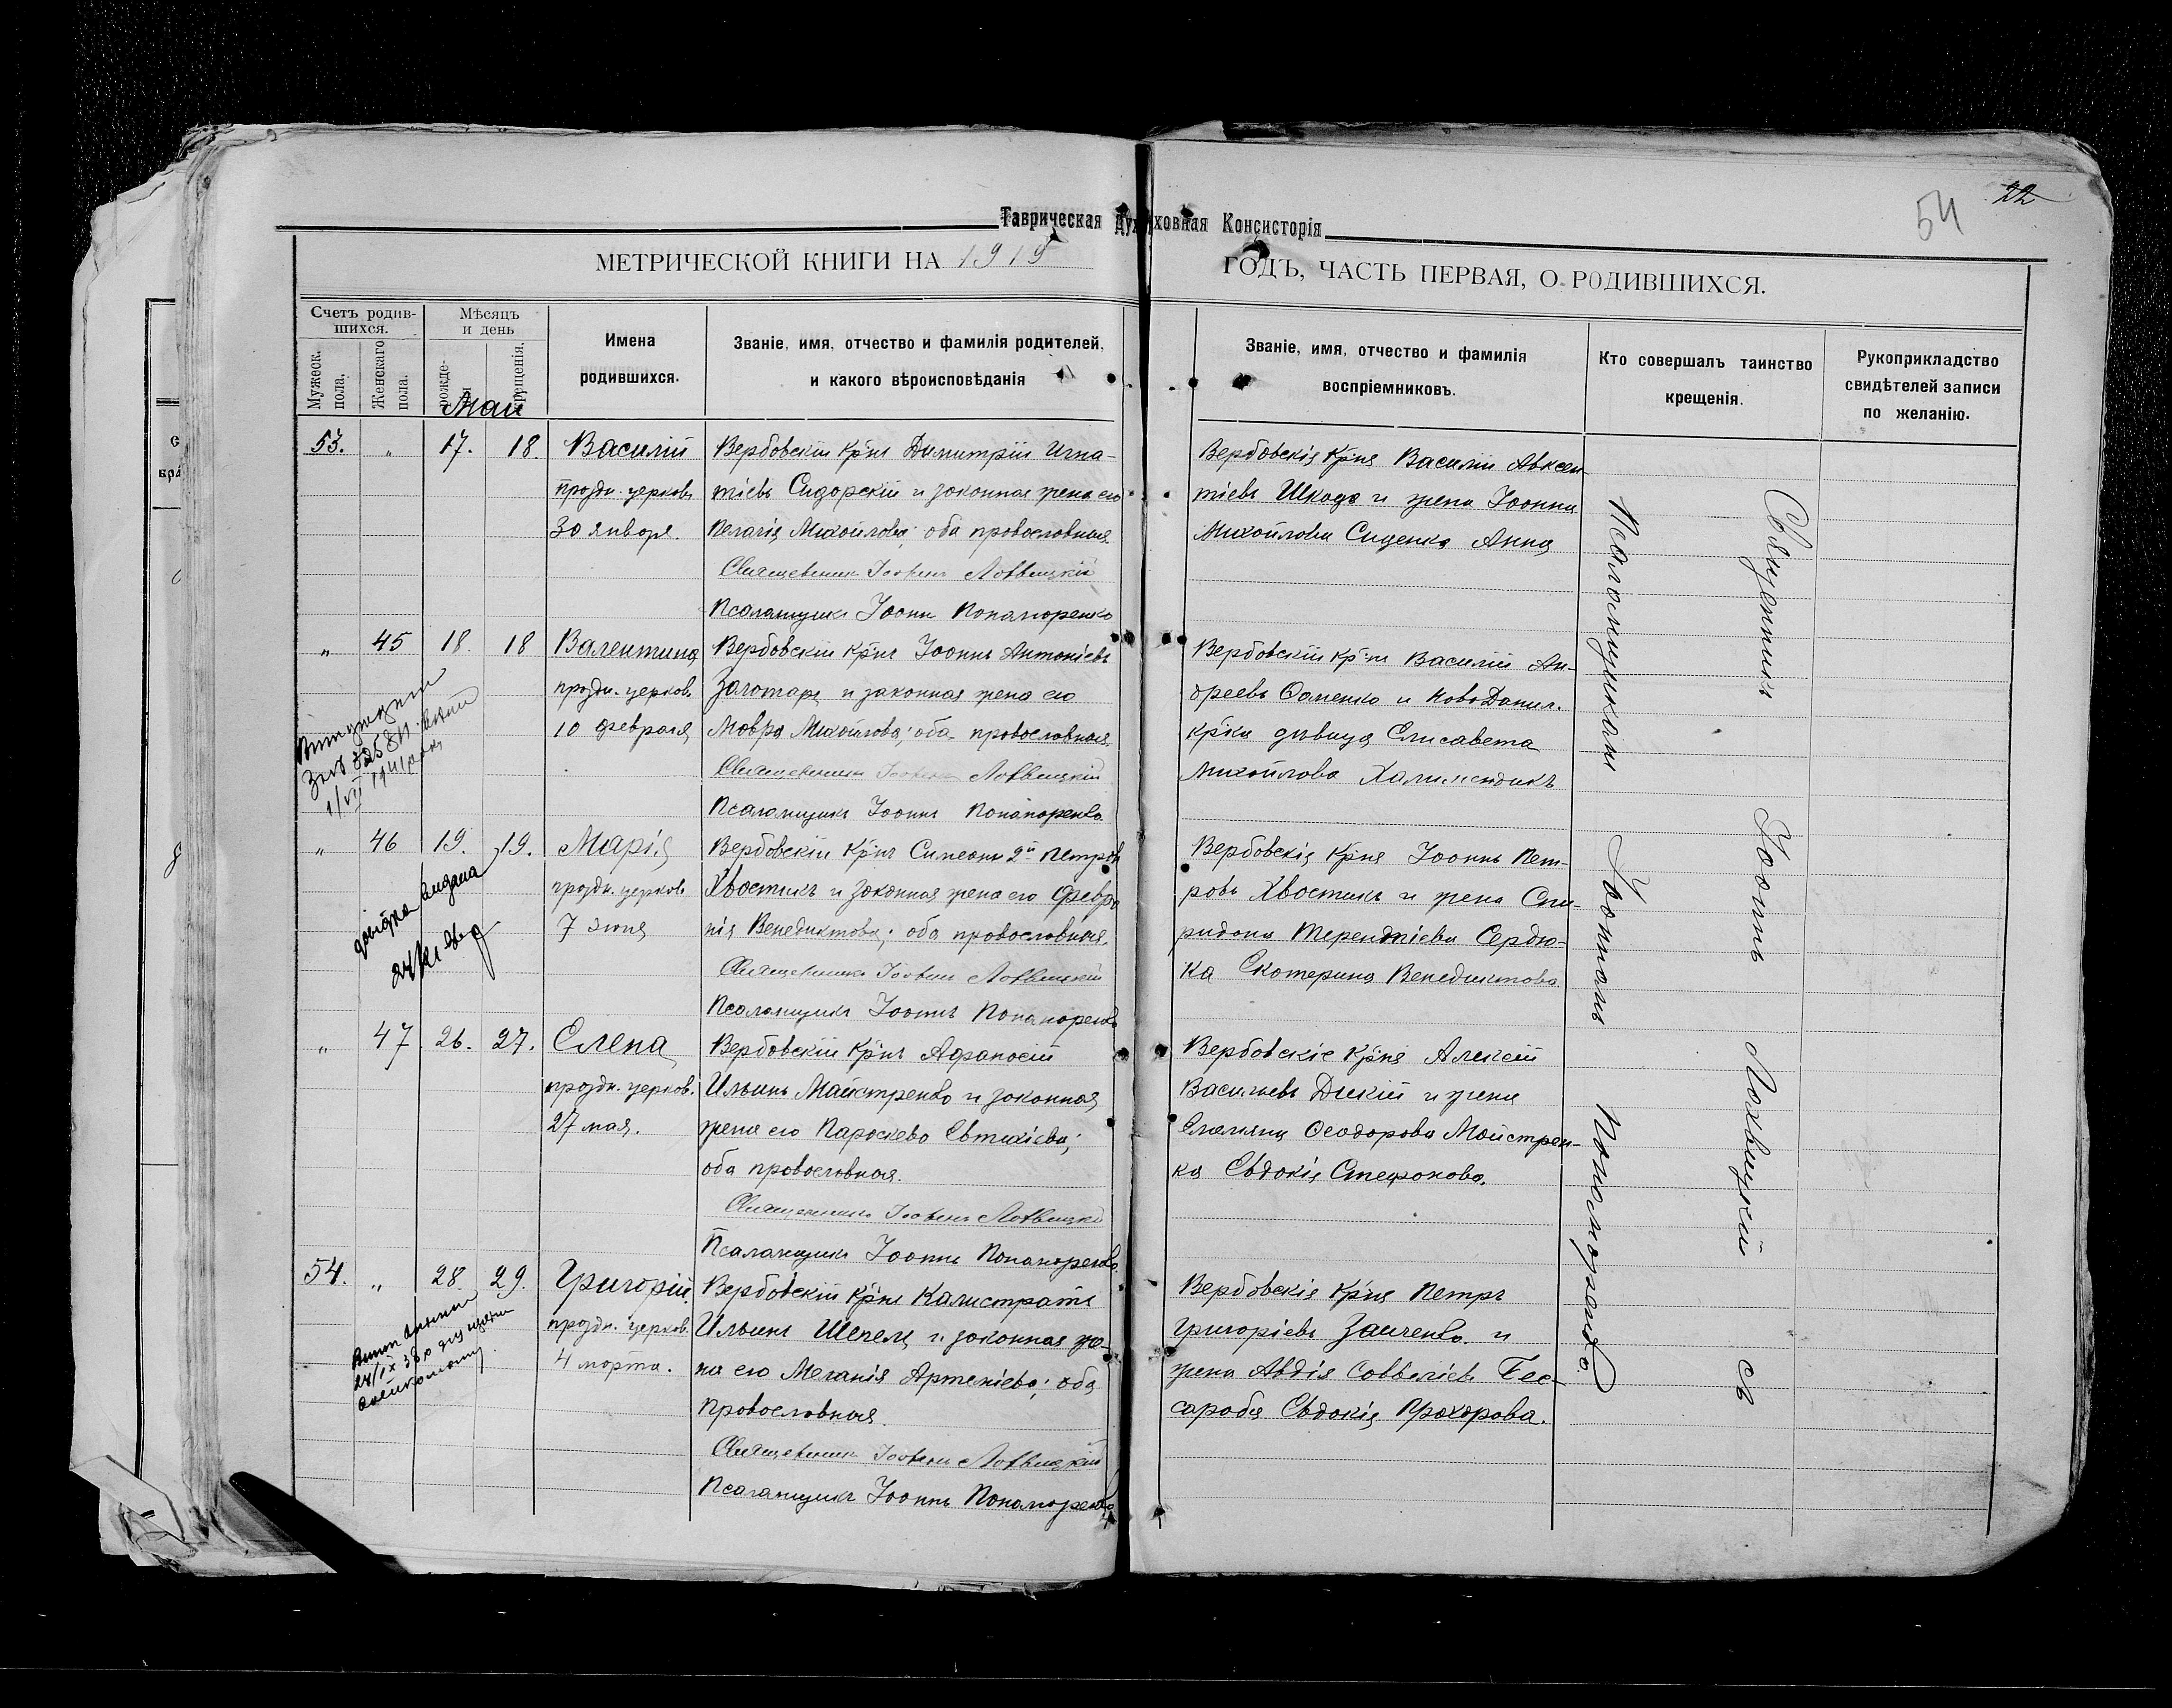 54 22
Таврическая Духовная Консисторія
МЕТРИЧЕСКОЙ КНИГИ НА 1915 ГОДЪ, ЧАСТЬ ПЕРВАЯ, О РОДИВШИХСЯ.
Счетъ родив-
шихся.
Мужеск.
пола.
Женскаго
пола.
Мѣсяцъ
и день
рожде-
нія
крещенія.
Имена
родившихся.
Званіе, имя, отчество и фамилія родителей,
и какого вѣроисповѣданія
Званіе, имя, отчество и фамилія
воспріемниковъ.
Кто совершалъ таинство
крещенія.
Рукоприкладство
свидѣтелей записи
по желанію.
Май
53. „ 17. 18. Василій
праздн. церковь
30 января.
Вербовскій кр̃нъ Димитрій Игна-
тіевъ Сидорскій и законная жена его
Пелагія Михайлова; оба православная.
Священникъ Іоаннъ Лохвицкій
Псаломщикъ Іоаннъ Понаморенко
Вербовскія кр̃не Василій Авксен
тіевъ Шкода и жена Іоанна
Михайлова Сиденко Анна
„ 45 18. 18 Валентина
праздн. церков.
10 февраля
Вербовскій кр̃нъ Іоаннъ Антоніевъ
Золотарь и законная жена его
Мавра Михайлова; оба православная.
Священникъ Іоаннъ Лохвицкій
Псаломщикъ Іоаннъ Понаморенко
Вербовскій кр̃нъ Василій Ан-
дреевъ и НовоДанил.
кр̃ка дѣвица Елисавета
Михайлова
1/VII 1941
„ 46 19. 19. Марія
праздн. церковь
7 іюня
Вербовскій кр̃нъ Симеонъ 2й Петровъ
Хвостикъ и законная жена его Февро
нія Венедиктова; оба православная.
Священникъ Іоаннъ Лохвицкій
Псаломщикъ Іоаннъ Понаморенко
Вербовскія кр̃не Іоаннъ Пет-
ровъ Хвостикъ и жена Спи-
ридона Терентіева Сердю-
ка Екатерина Венедиктова
довідка видана
„ 47. 26. 27. Елена
праздн. церков.
27 мая.
Вербовскій кр̃нъ Афанасій
Ильинъ Майстренко и законная
жена его Параскева Евтихіева;
оба православная.
Священникъ Іоаннъ Лохвицкій
Псаломщикъ Іоаннъ Понаморенко.
Вербовскіе кр̃не Алексій
Васильевъ Дикій и жена
Емельяна Ѳеодорова Майстрен-
ка Евдокія Стефанова.
54. „ 28 29. Григорій.
праздн. церков.
4 марта.
Вербовскій кр̃нъ Калистратъ
Ильинъ Шепель и законная же-
на его Меланія Артеміева; оба
православная.
Священникъ Іоаннъ Лохвицкій
Псаломщикъ Іоаннъ Понаморенко
Вербовскія кр̃не Петръ
Григоріевъ Заиченко и
жена Авдія Савеліева Бес-
сараба Евдокія Прохорова.
24/IX 38
Священникъ Іоаннъ Лохвицкій съ
Псаломщикомъ Іоанномъ Понаморенко.